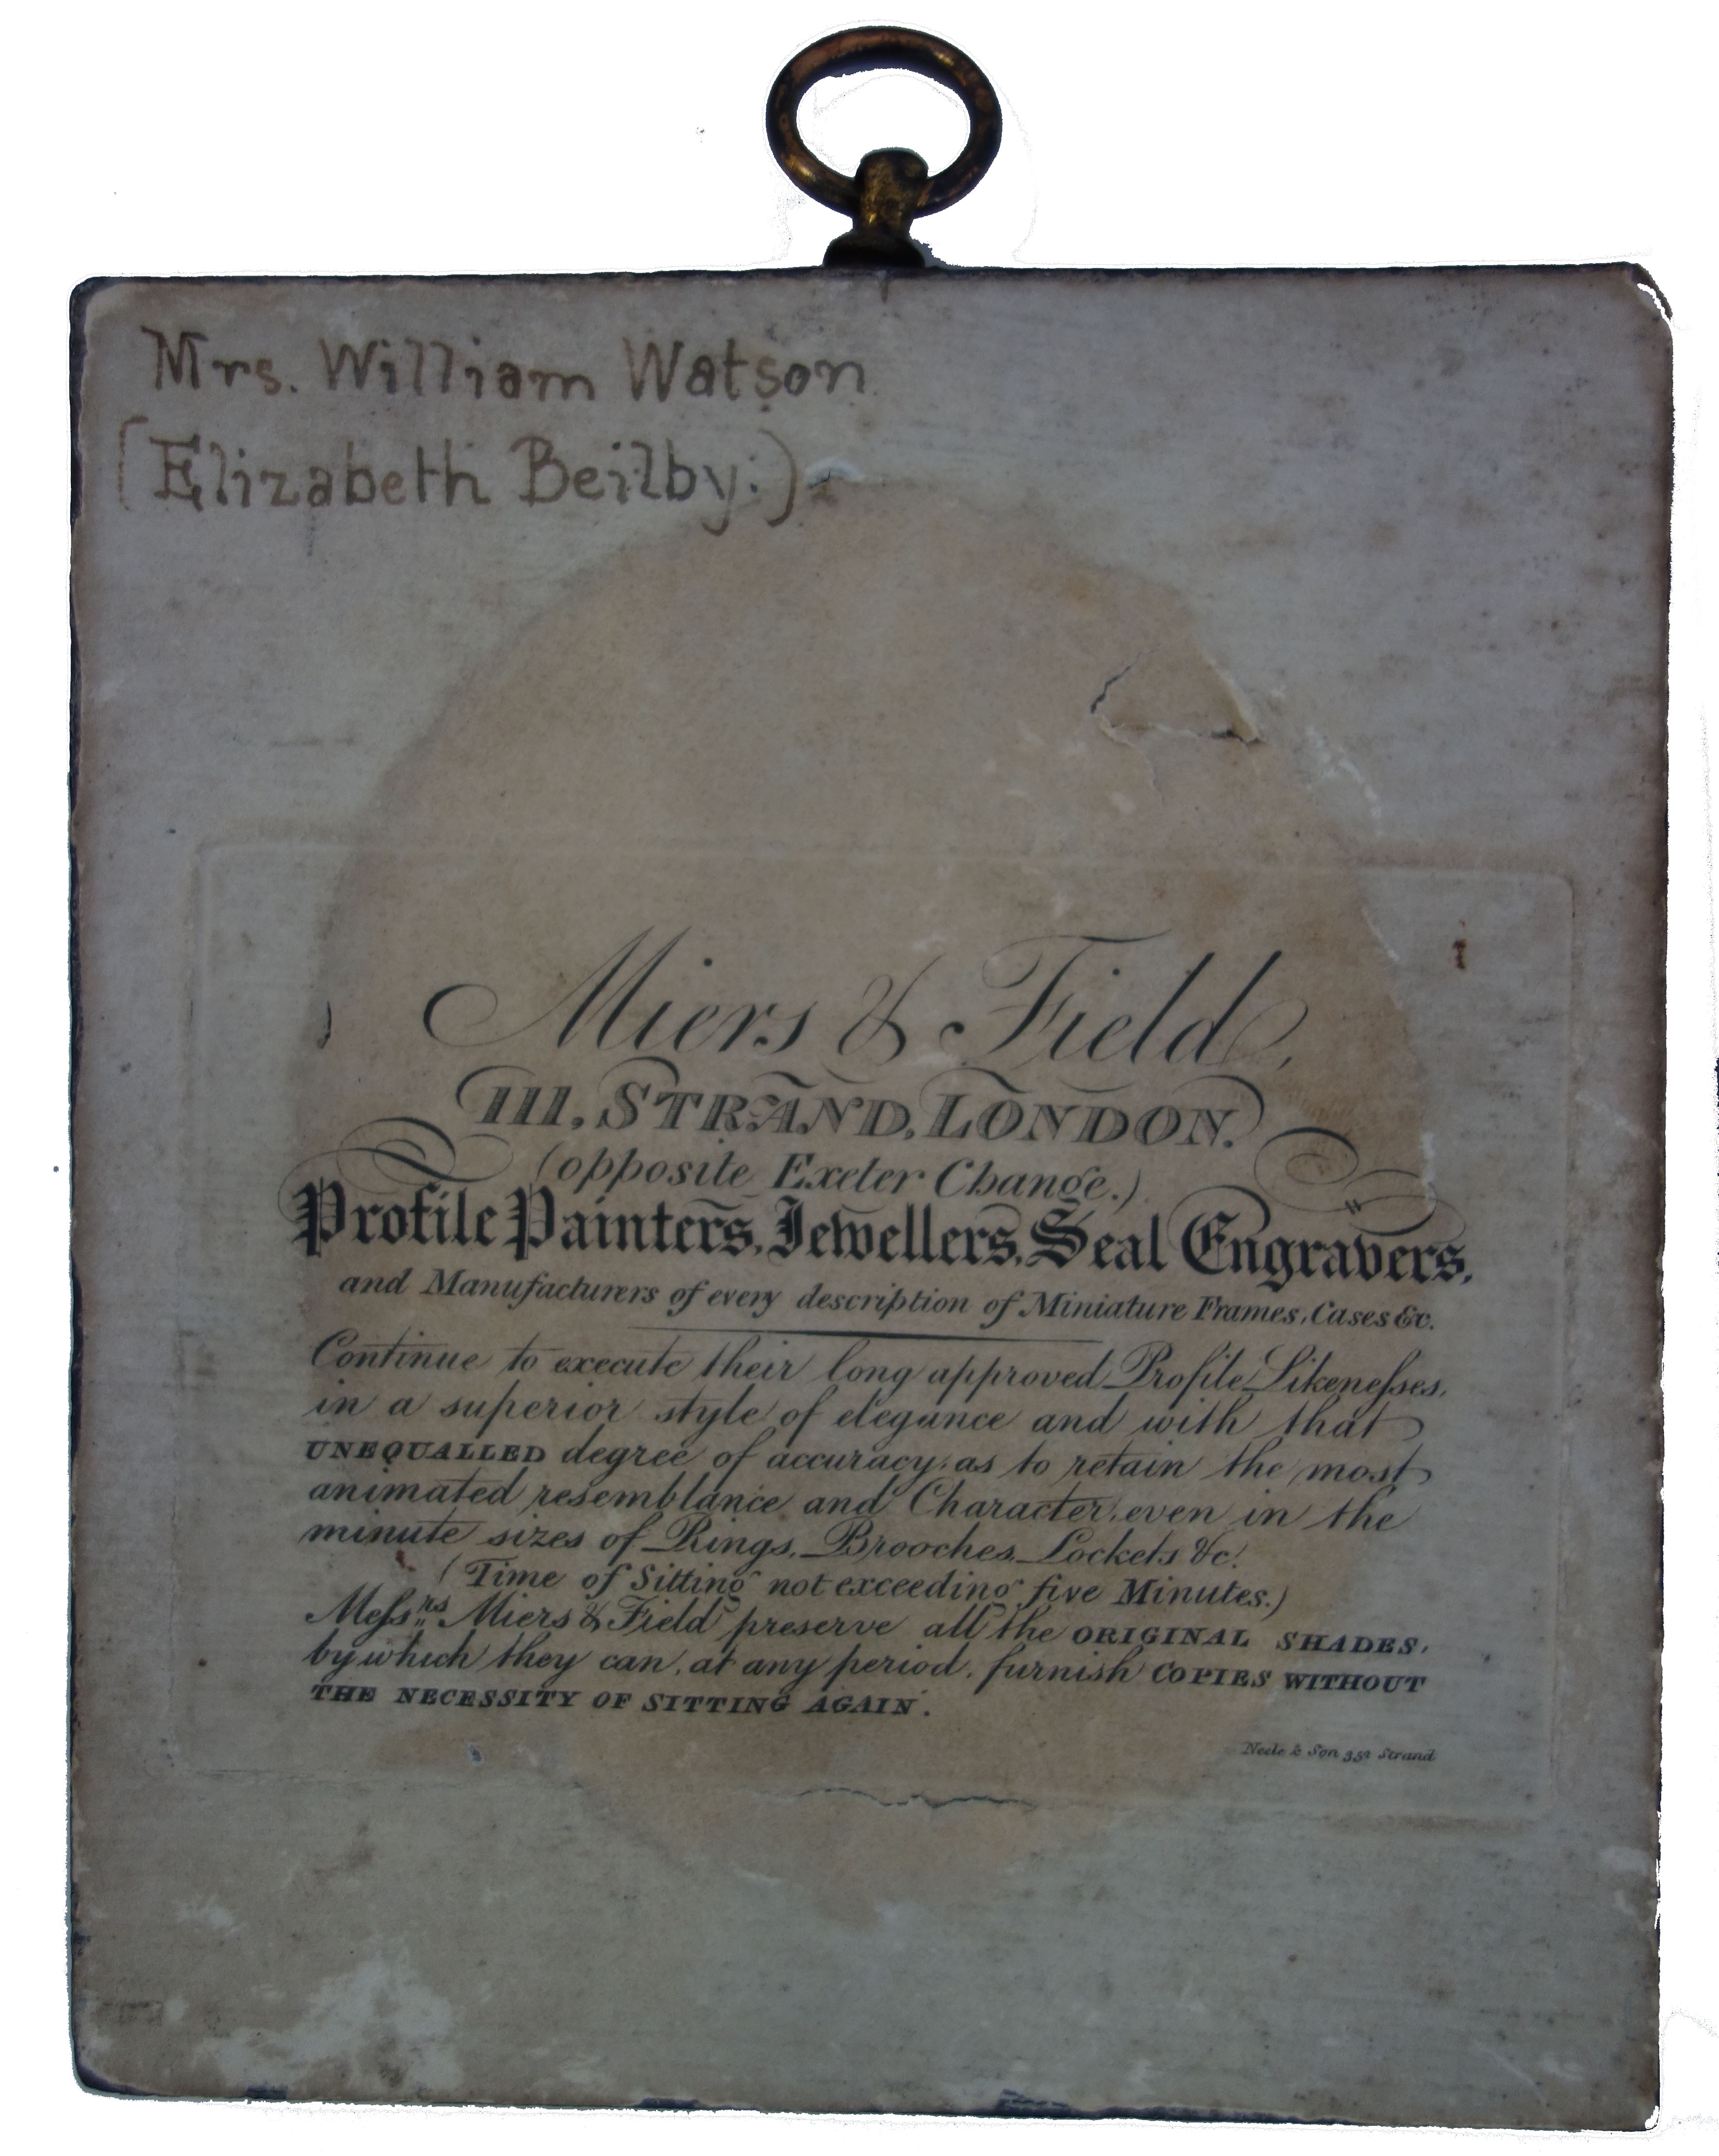 Mrs. William Watson
(Elizabeth Beilby.)
Miers & Field,
111, STRAND, LONDON.
(opposite Exeter Change.)
Profile Painters, Jewellers, Seal Engravers,
and Manufacturers of every description of Miniature Frames, Cases &c.
Continue to execute their long approved Profile Likeneſses,
in a superior style of elegance and with that
UNEQUALLED degree of accuracy, as to retain the most
animated resemblance and Character, even in the
minute sizes of Rings, Brooches, Lockets &c.
(Time of Sitting not exceeding five Minutes.)
Meſsrs Miers & Field preserve all the ORIGINAL SHADES,
by which they can, at any period, furnish COPIES WITHOUT
THE NECESSITY OF SITTING AGAIN.
Neele & Son 352 Strand